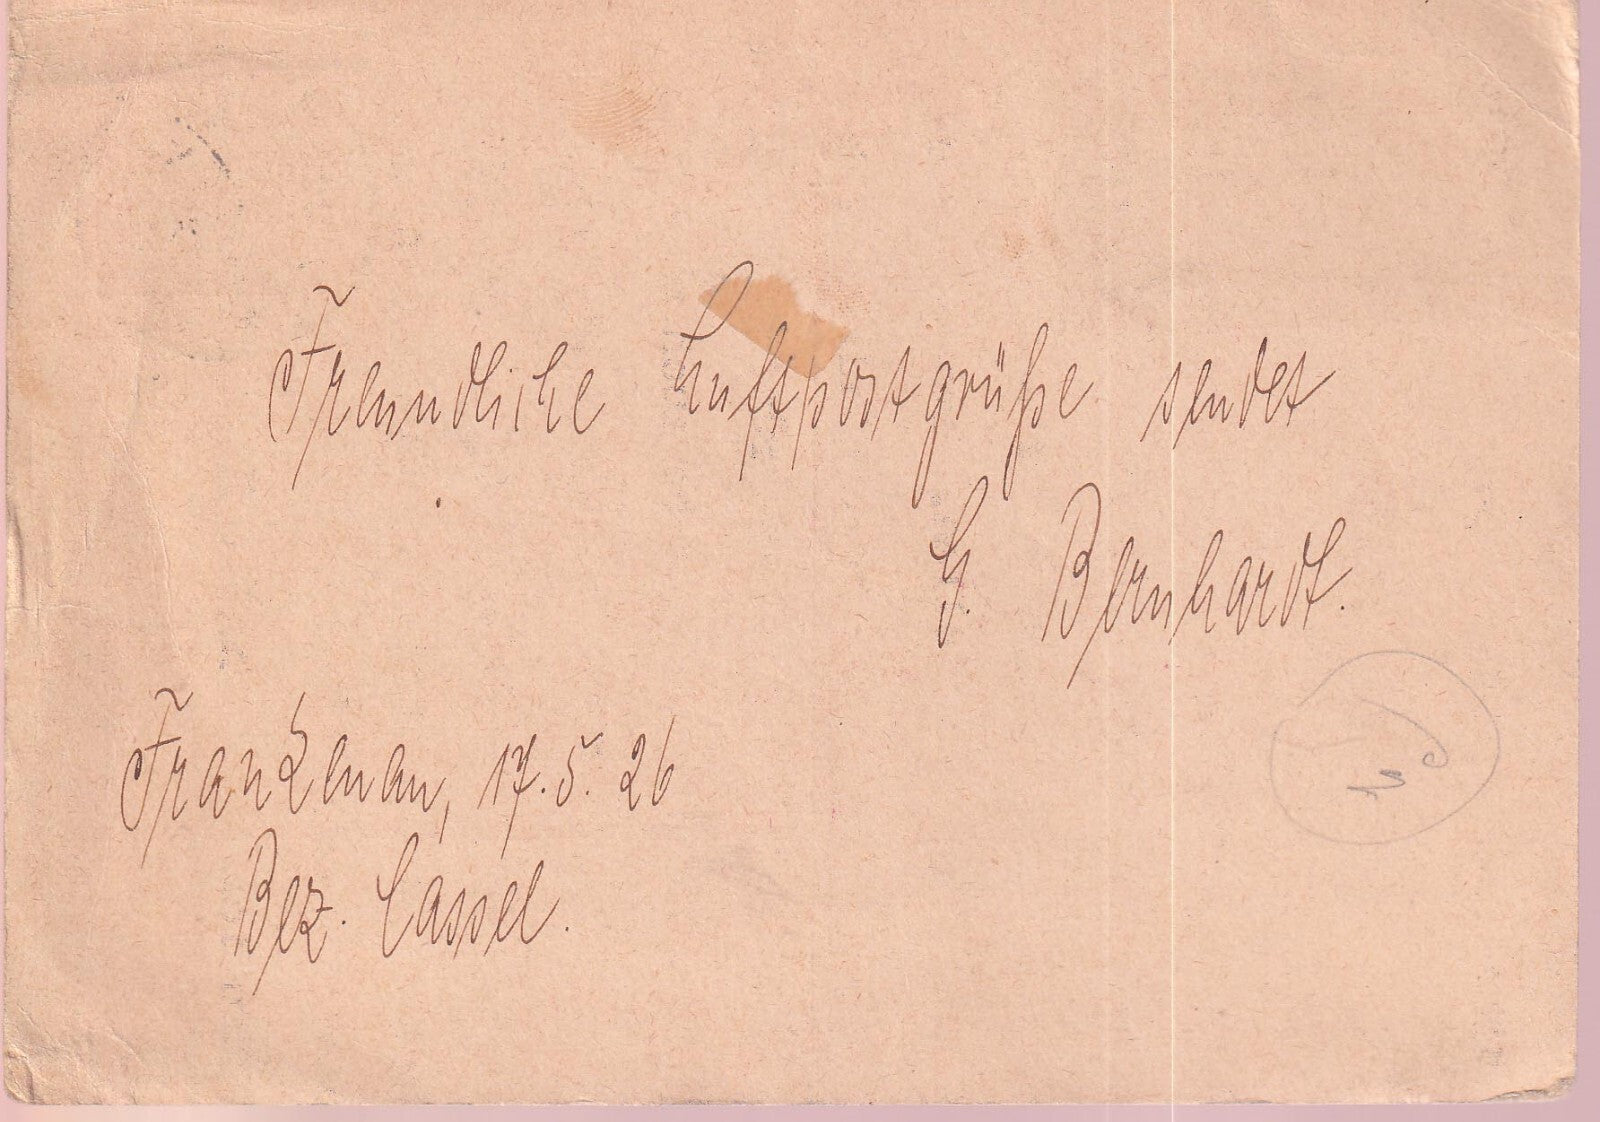 Freundliche Luftpostgrüße sendet
G. Bernhardt.
Frankenau, 17.5.26
Bez. Cassel.